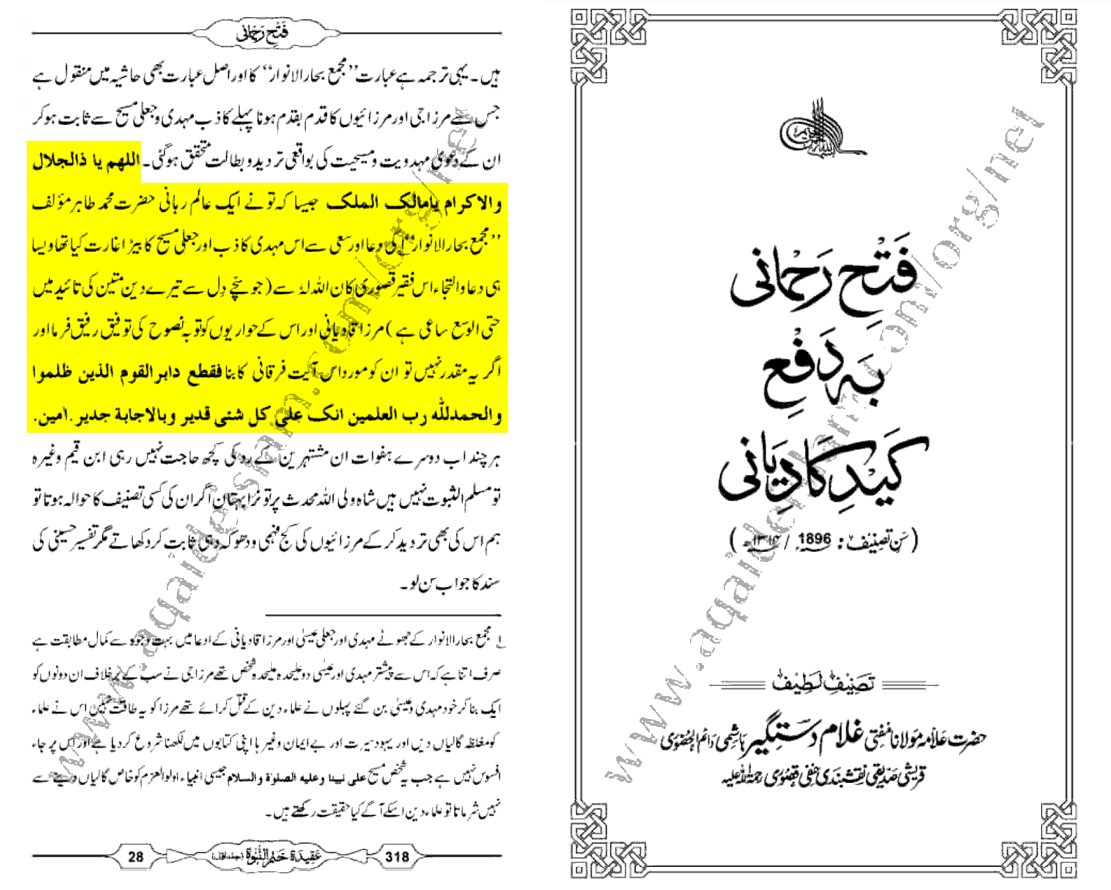 فتحِ رَحمانی
ہیں۔ یہی ترجمہ ہے عبارت ’’مجمع بحار الانوار‘‘ کا اور اصل عبارت بھی حاشیہ میں منقول ہے
جس سے مرزا جی اور مرزائیوں کا قدم بقدم ہونا پہلے کاذب مہدی و جعلی مسیح سے ثابت ہوکر
ان کے دعویٰ مہدویت و مسیحیت کی بواقعی تردید و بطالت متحقق ہوگئی۔ اللھم یا ذالجلال
والاکرام یامالک الملک جیسا کہ تو نے ایک عالم ربانی حضرت محمد طاہر مؤلف
’’مجمع بحار الانوار‘‘ کی دعا اور سعی سے اس مہدی کاذب اور جعلی مسیح کا بیڑا غارت کیا تھا ویسا
ہی دعا و التجاء اس فقیر قصوری کان اللہ لہٗ سے (جو سچے دِل سے تیرے دین متین کی تائید میں
حتی الوسع ساعی ہے) مرزا قادیانی اور اس کے حواریوں کو توبہ نصوح کی توفیق رفیق فرما اور
اگر یہ مقدر نہیں تو ان کو مورد اس آیت فرقانی کا بنا فقطع دابرالقوم الذین ظلموا
والحمدللہ رب العلمین انک علی کل شئی قدیر وبالاجابۃ جدیر. امین.
ہر چند اب دوسرے ہفوات ان مشتہرین کے رد کی کچھ حاجت نہیں رہی ابن قیم وغیرہ
تو مسلم الثبوت نہیں ہیں شاہ ولی اللہ محدث پر تو نرا بہتان اگر ان کی کسی تصنیف کا حوالہ ہوتا تو
ہم اس کی بھی تردید کرکے مرزائیوں کی کج فہمی و دھوکہ دہی ثابت کر دکھاتے مگر تفسیر حسینی کی
سند کا جواب سن لو۔
۱ مجمع بحار الانوار کے جھوٹے مہدی اور جعلی عیسیٰ اور مرزا قادیانی کے ادعا میں بہت وجوہ سے کمال مطابقت ہے
صرف اتنا ہے کہ اس سے پیشتر مہدی اور عیسیٰ دو علیحدہ علیحدہ شخص تھے مرزا جی نے سب کے برخلاف ان دونوں کو
ایک بنا کر خود مہدی و عیسیٰ بن گئے پہلوں نے علماء دین کے قتل کرائے تھے مرزا کو یہ طاقت نہیں اس نے علماء
کو مغلظہ گالیاں دیں اور یہود سیرت اور بے ایمان وغیرہا اپنی کتابوں میں لکھنا شروع کر دیا ہے اور اس پر جاء
افسوس نہیں ہے جب یہ شخص مسیح علی نبینا وعلیہ الصلوۃ والسلام جیسی انبیاء اولوالعزم کو خاص گالیاں دینے سے
نہیں شرماتا تو علماء دین اسکے آگے کیا حقیقت رکھتے ہیں۔
28 عقیدۃ ختم النبوۃ (جلد اوّل) 318
فَتْحِ رَحْمانی
بَہ دَفْعِ
کَیْدِ کَادِیانی
(سَنِ تصنِیف : 1896 / ۱۳۱۴ھ)
تَصنِیفِ لَطِیف
حضرت علامہ مولانا مفتی غلام دستگیر ہاشمی دائم الحضوری
قریشی صدیقی نقشبندی حنفی قصوری رحمۃ اللہ علیہ
www.aqaideislam.com/org/net
www.aqaideislam.com/org/net